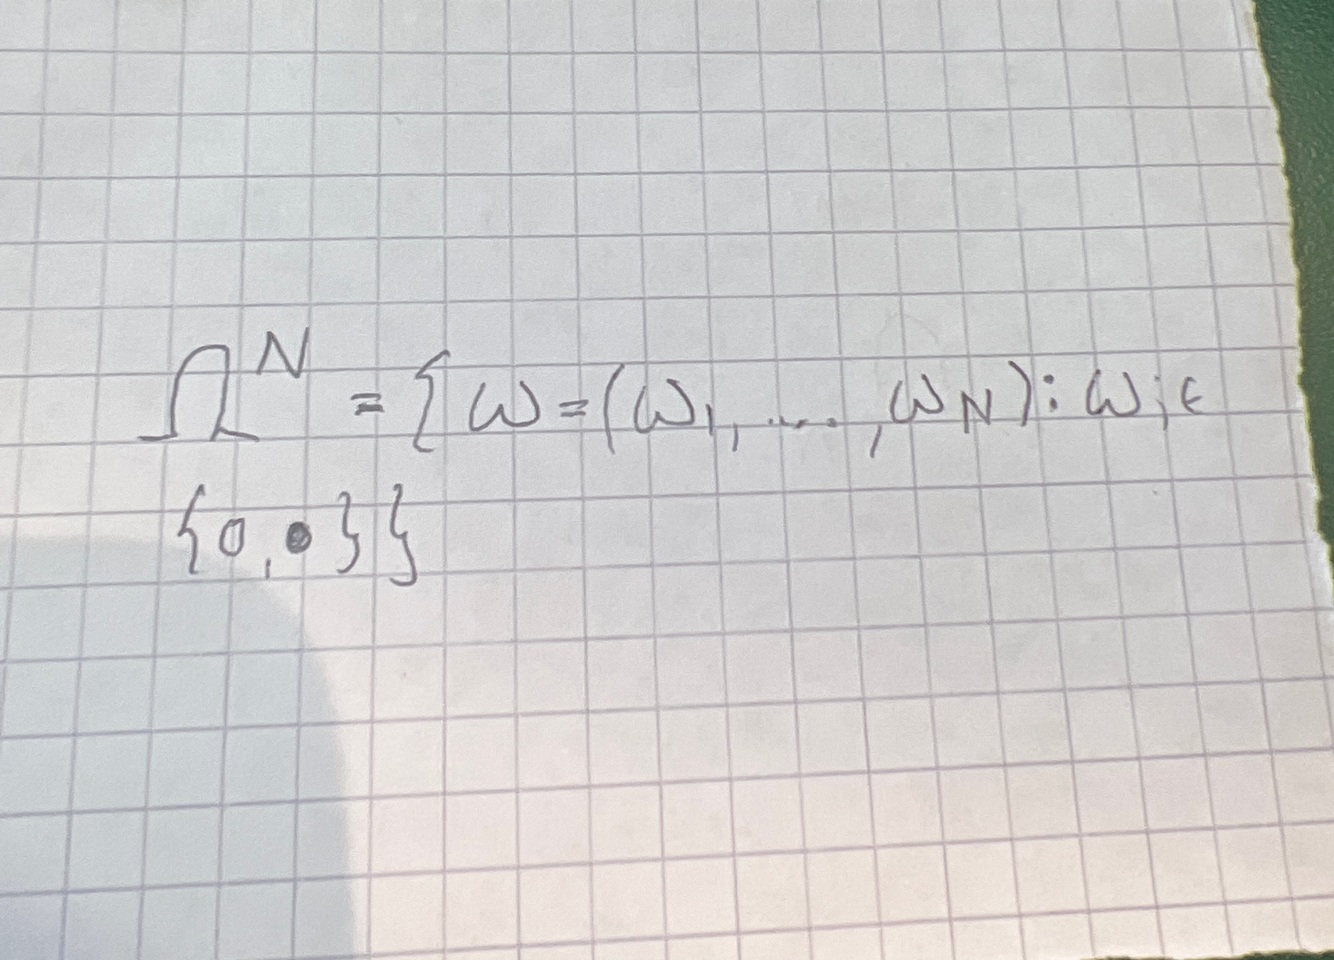 Ω^N = { ω = (ω_1, ...., ω_N) : ω_i ∈
{0, •}}